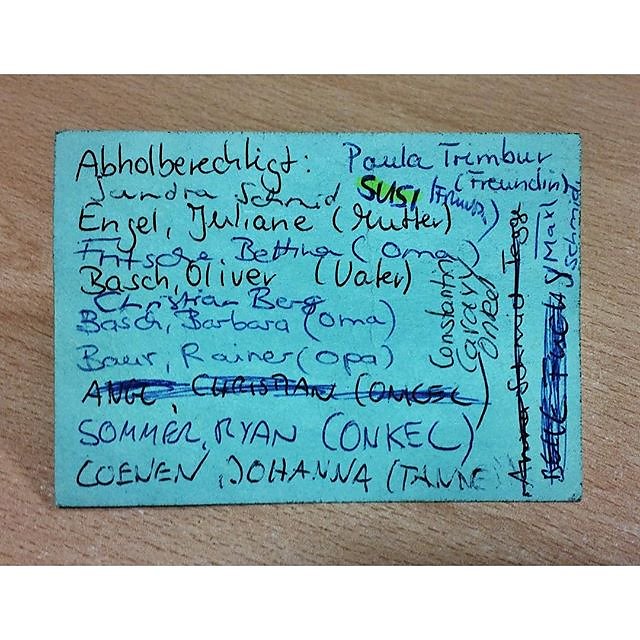 Abholberechtigt:
Paula Trimbur
(Freundin)
Sandra Schmid
SUSI
Engel, Juliane (Mutter)
Fritsche, Bettina (Oma)
Basch, Oliver (Vater)
Christian Berg
Basch, Barbara (Oma)
Baur, Rainer (Opa)
CHRISTIAN
SOMMER, RYAN (ONKEL)
COENEN, JOHANNA (TANNE
Constantin
Onkel
Maxl
Schmid